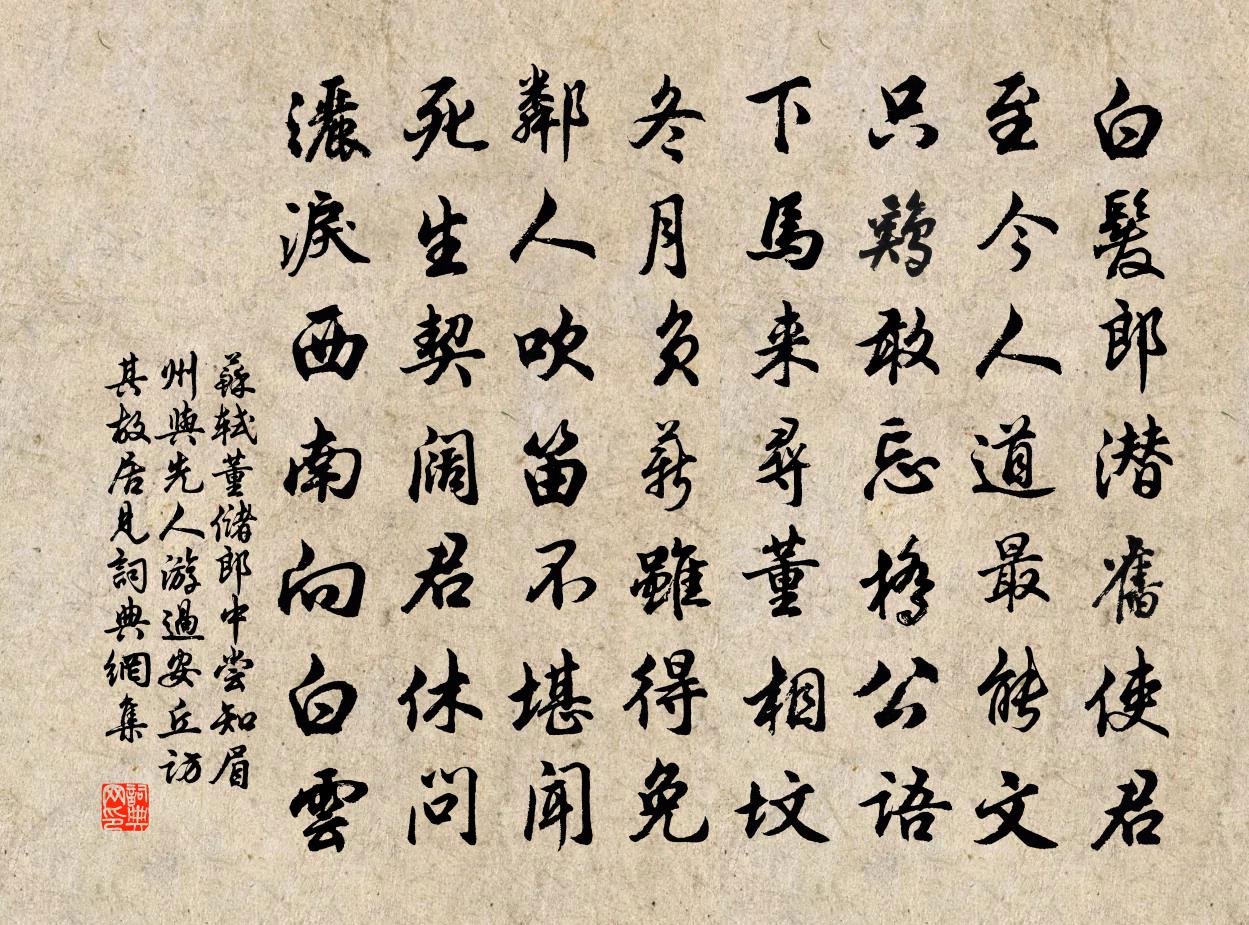 白髮郎潜舊使君
至今人道最能文
只鷄敢忘橋公語
下馬来尋董相墳
冬月負薪雖得免
鄰人吹笛不堪聞
死生契闊君休問
灑淚西南向白雲
蘇軾董儲郎中嘗知眉
州與先人游過安丘訪
其故居見詞典網集
詞典网印